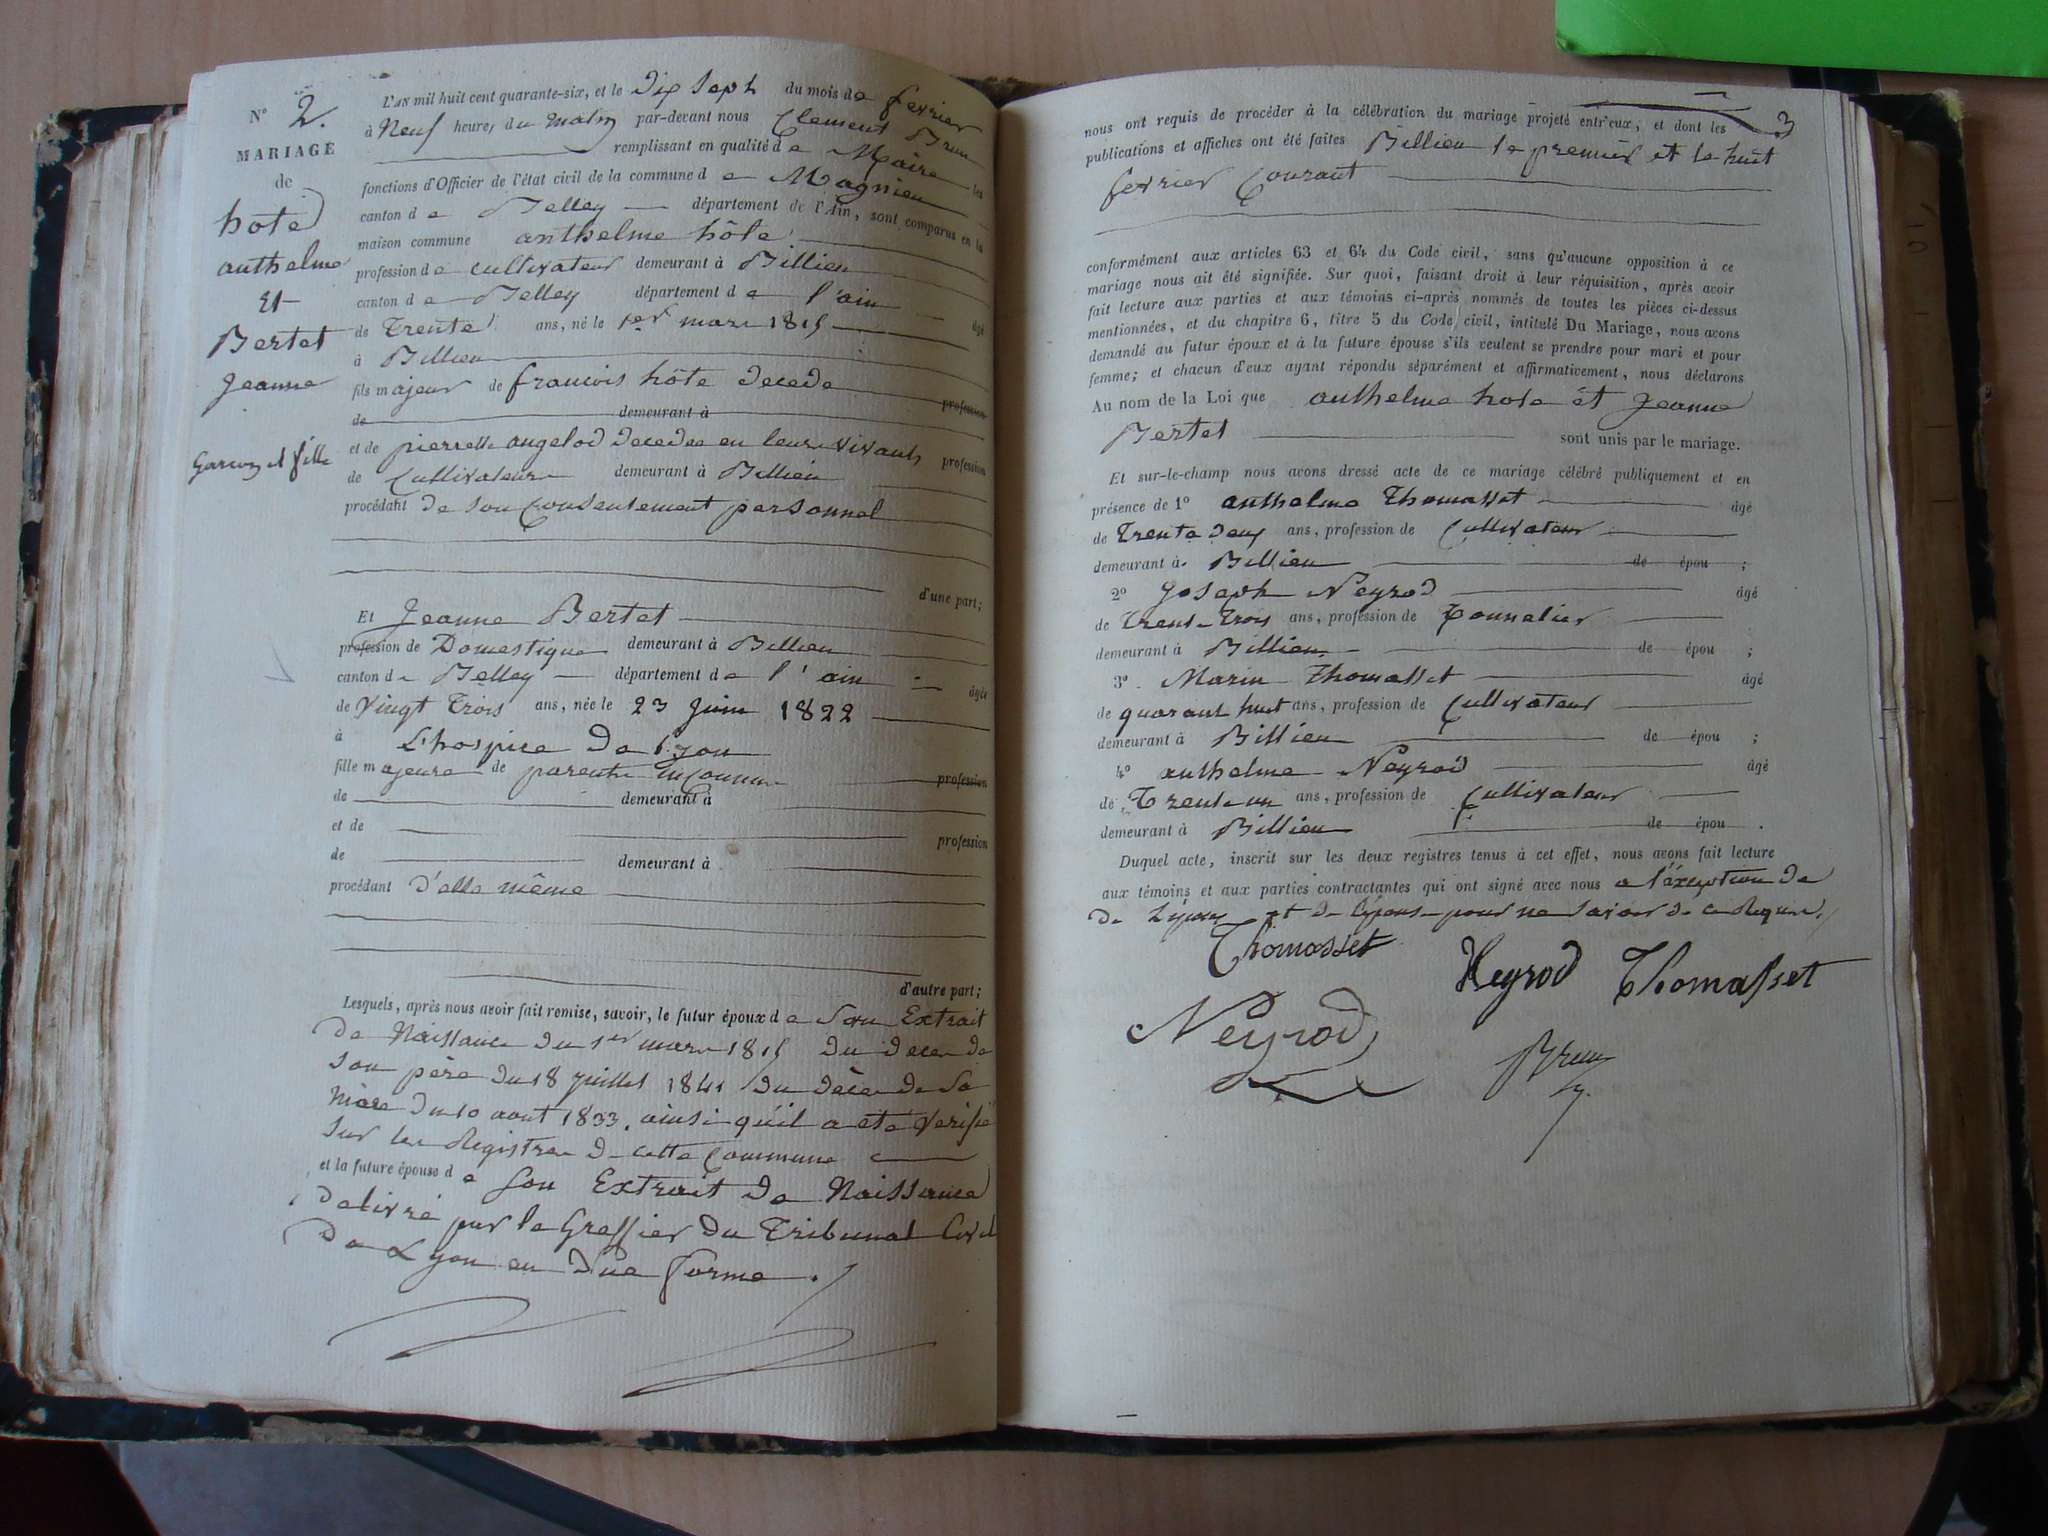 N° 2.
MARIAGE
de
hôte
anthelme
Et
Bertet
Jeanne
Garçon et fille
L'AN mil huit cent quarante-six, et le Dix Sept du mois de fevrier
à Neuf heures du matin par-devant nous Clement Brun
remplissant en qualité de Maire les
fonctions d'Officier de l'état civil de la commune de Magnieu
canton de Belley département de l'Ain, sont comparus en la
maison commune anthelme hôte
profession de cultivateur demeurant à Billieu
canton de Belley département de l'ain âgé
de Trente ans, né le 1er mars 1815
à Billieu
fils majeur de francois hôte decede profession
de demeurant à
et de pierrette angelod decedee en leurs vivants profession
de Cultivateurs demeurant à Billieu
procédant de son Consentement personnel
d'une part;
Et Jeanne Bertet
profession de Domestique demeurant à Billieu
canton de Belley département de l'ain âgée
de Vingt Trois ans, née le 23 Juin 1822
à L'hospice De Lyon
fille majeure de parents inconnus profession
de demeurant à
et de profession
de demeurant à
procédant d'elle même
d'autre part;
Lesquels, après nous avoir fait remise, savoir, le futur époux de Son Extrait
De Naissance Du 1er mars 1815 Du Deces de
Son père Du 18 Juillet 1841 Du Déces De Sa
Mère Du 10 aout 1833. ainsi qu'il a été Verifié
Sur les Registres De cette Commune
et la future épouse de Son Extrait De Naissance
Delivré par le Greffier Du Tribunal Civil
De Lyon en Due Forme.
3
nous ont requis de procéder à la célébration du mariage projeté entr'eux, et dont les
publications et affiches ont été faites Billieu le premier et le huit
fevrier Courant
conformément aux articles 63 et 64 du Code civil, sans qu'aucune opposition à ce
mariage nous ait été signifiée. Sur quoi, faisant droit à leur réquisition, après avoir
fait lecture aux parties et aux témoins ci-après nommés de toutes les pièces ci-dessus
mentionnées, et du chapitre 6, titre 5 du Code civil, intitulé Du Mariage, nous avons
demandé au futur époux et à la future épouse s'ils veulent se prendre pour mari et pour
femme; et chacun d'eux ayant répondu séparément et affirmativement, nous déclarons
Au nom de la Loi que anthelme hote et Jeanne
Bertet sont unis par le mariage.
Et sur-le-champ nous avons dressé acte de ce mariage célébré publiquement et en
présence de 1° anthelme Thomasset âgé
de Trente Deux ans, profession de Cultivateur
demeurant à Billieu de épou ;
2° Joseph Neyrod âgé
de Trente Trois ans, profession de Tonnelier
demeurant à Billieu de épou ;
3° Marin Thomasset âgé
de quarant huit ans, profession de Cultivateur
demeurant à Billieu de épou ;
4° anthelme Neyrod âgé
de Trente un ans, profession de Cultivateur
demeurant à Billieu de épou .
Duquel acte, inscrit sur les deux registres tenus à cet effet, nous avons fait lecture
aux témoins et aux parties contractantes qui ont signé avec nous a l'éxeption De
De L'epoux et De L'epouse pour ne Savoir De ce Requis.
Thomasset Neyrod Thomasset
Neyrod Brun